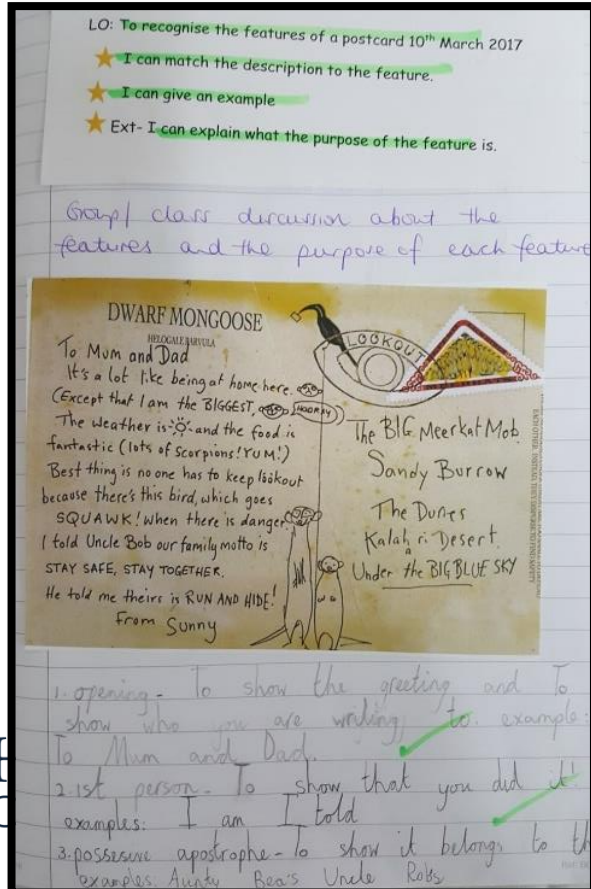 LO: To recognise the features of a postcard 10th March 2017
I can match the description to the feature.
I can give an example
Ext- I can explain what the purpose of the feature is.
Group/ class discussion about the
features and the purpose of each feature
DWARF MONGOOSE
HELOGALE PARVULA
To Mum and Dad
It's a lot like being at home here.
(Except that I am the BIGGEST, HOORAY)
The weather is and the food is
fantastic (lots of scorpions! YUM!)
Best thing is no one has to keep lookout
because there's this bird, which goes
SQUAWK! when there is danger.
I told Uncle Bob our family motto is
STAY SAFE, STAY TOGETHER.
He told me theirs is RUN AND HIDE!
From Sunny
LOOKOUT
The BIG Meerkat Mob
Sandy Burrow
The Dunes
Kalahari Desert
Under the BIG BLUE SKY
1. opening - To show the greeting and To
show who you are writing to. example:
To Mum and Dad.
2. 1st person - To show that you did it!
examples: I am I told
3. possesive apostrophe - To show it belongs to th
examples: Aunty Bea's Uncle Robs